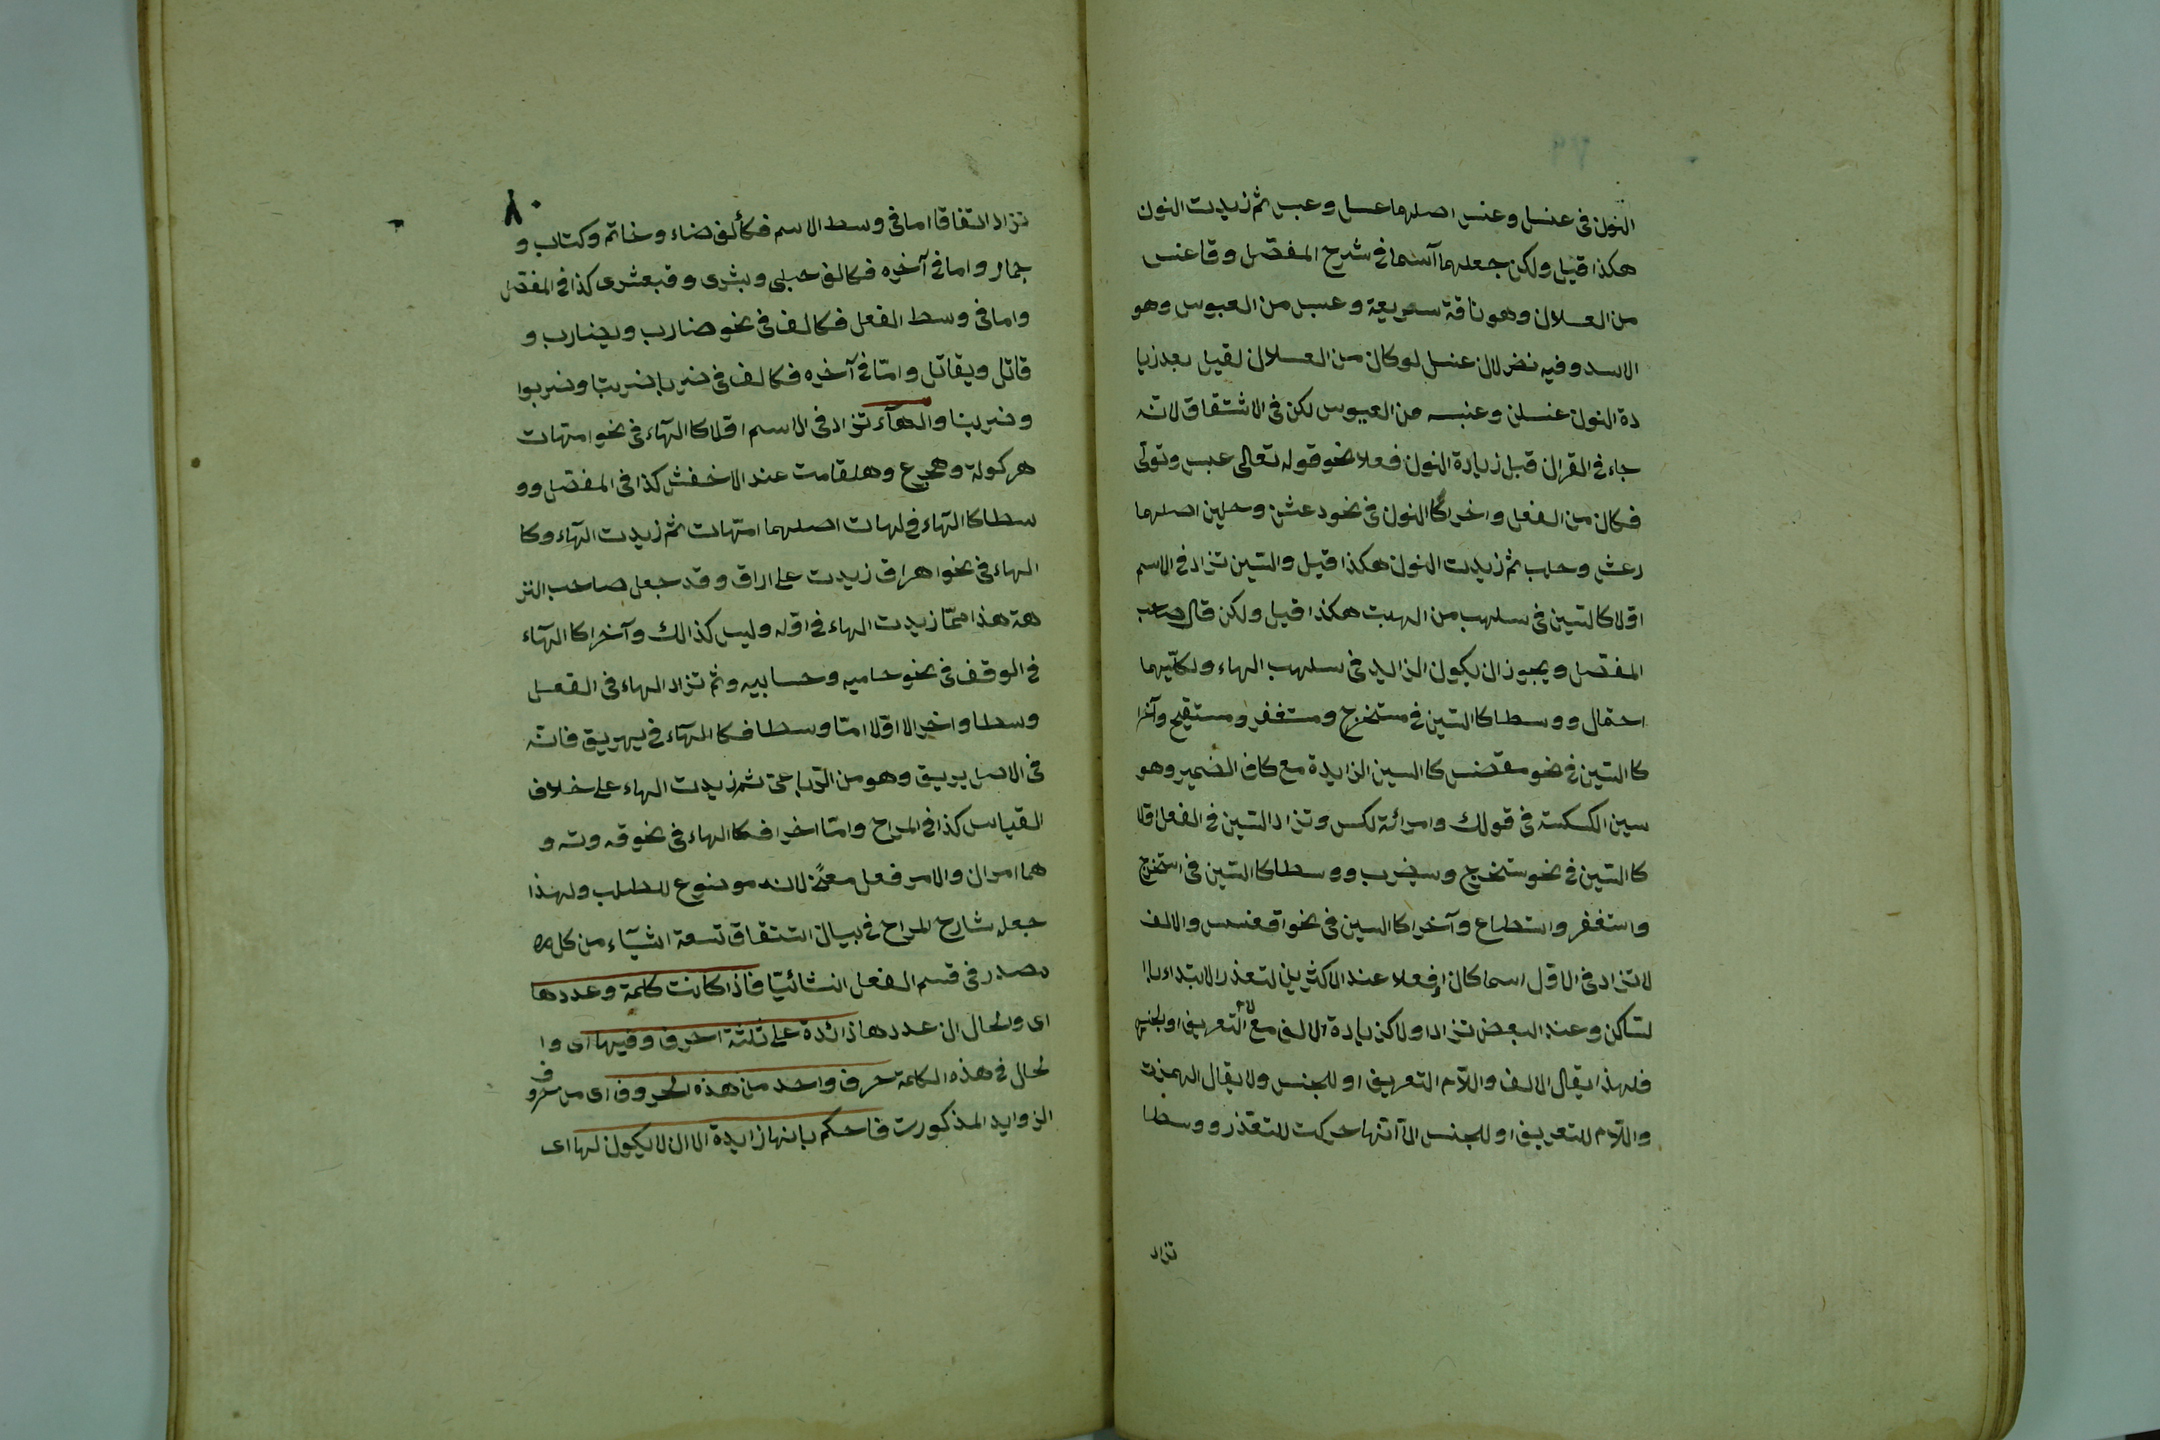 النون فى عنسل وعنبس اصلهما عسل وعبس ثم زيدت النون
هكذا قيل ولكن جعلهما آسما فى شرح المفصّل وقا عنس
من العسلان وهو ناقة سريعة وعبس من العبوس وهو
الاسد وفيه نضر لان عنسل لو كان من العسلان لقيل بعد زيا
دة النون عنسلن وعنبسه من العبوس لكن فى الاشتقاق لانّه
جاء فى القران قبل زيادة النون فعلا نحو قوله تعالى عبس وتولّى
فكان من الفعل واخرا كا النون فى نحو دعشن وحلبن اصلهما
رعش وحلب ثم زيدت النون هكذا قيل والسّين تزاد فى الاسم
اوّلا كالسّين فى سلهب من الهبت هكذا قيل ولكن قال صاحب
المفصّل ويجوز ان يكون الزايد فى سلهب الهاء ولكلّيهما
احتمال ووسطا كا السّين فى مستخرج ومستغفر ومستقيح وآخرا
كا السّين فى نحو مقعنس كا السين الزايدة مع كاف الضمير وهو
سين الكسكسة فى قولك وامرائة لكس وتزاد السّين فى الفعل اوّلا
كا السّين فى نحو ستخرج وسيضرب ووسطا كا السّين فى استخرج
واستغفر واستطاع وآخرا كا السين فى نحو اقعنسس والالف
لا تزاد فى الاوّل اسما كان او فعلا عند الاكثرين لتعذر الابتداء باا
لسّاكن وعند البعض تزاد اولا كزيادة الالف مع لام التعريف او لجنس
فلهذا يقال الالف واللّام التعريف او للجنس ولا يقال الهمزت
واللّام للتعريف او للجنس الّا انّها حركت للتعذر ووسطا
تزاد
٨٠
تزاد اتفاقا اما فى وسط الاسم فكألف ضاء وخاتم وكتاب و
حمار واما فى آخره فكالف حبلى وبشرى وقبعثرى كذا فى المفصّل
واما فى وسط الفعل فكالف فى نحو ضارب ويضارب و
قاتل ويقاتل وامّا فى آخره فكالف فى ضربا ضربتا وضربوا
وضربنا والهآء تزاد فى الاسم اوّلا كا الهآء فى نحو امّهات
هركولة وهجرع وهلقامت عند الاخفش كذا فى المفصّل وو
سطا كا الهآء فى لهات اصلهما امّهات ثم زيدت الهآء وكا
الهاء فى نحو اهراق زيدت على اراق وقد جعل صاحب النز
هة هذا ممّا زيدت الهاء فى اوّله وليس كذالك وآخرا كا الهآء
فى الوقف فى نحو حاميه وحسابيه وثم تزاد الهاء فى الفعل
وسطا واخرا لا اوّلا امّا وسطا فكا الهآء فى يهريق فانّه
فى الاصل يريق وهو من الرّباعىّ ثم زيدت الهاء على خلاف
القياس كذا فى المراح وامّا اخرا فكا الهاء فى نحو قه وته و
هما امران والامر فعل معنىً لانه موضوع للطلب ولهذا
جعل شارح المراح فى بيان اشتقاق تسعة اشيآء من كل
مصدر فى قسم الفعل انشائيّا فاذا كانت كلمة وعددها
اى والحال ان عددها زائدة على ثلثة احرف وفيها اى وا
لحال فى هذه الكلمة حرف واحد من هذه الحروف اى من حروف
الزوايد المذكورت فاحكم بانها زايدة الا ان لا يكون لها اى